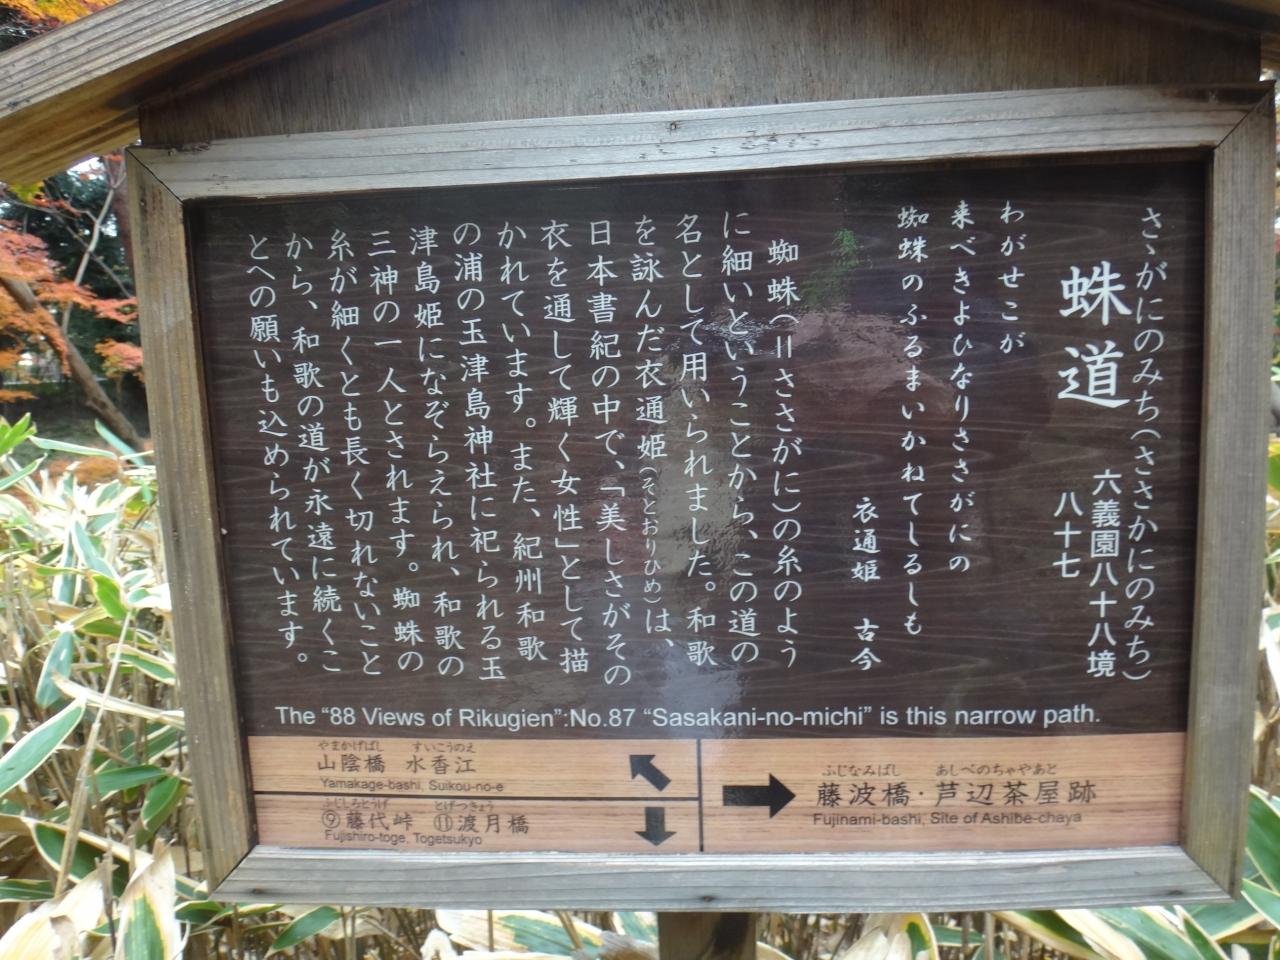 さゝがにのみち(ささかにのみち)
蛛道
六義園八十八境
八十七
わがせこが
来べきよひなりささがにの
蜘蛛のふるまいかねてしるしも
衣通姫 古今
蜘蛛(=ささがに)の糸のよう
に細いということから、この道の
名として用いられました。和歌
を詠んだ衣通姫(そとおりひめ)は、
日本書紀の中で、「美しさがその
衣を通して輝く女性」として描
かれています。また、紀州和歌
の浦の玉津島神社に祀られる玉
津島姫になぞらえられ、和歌の
三神の一人とされます。蜘蛛の
糸が細くとも長く切れないこと
から、和歌の道が永遠に続くこ
とへの願いも込められています。
The “88 Views of Rikugien”:No.87 “Sasakani-no-michi” is this narrow path.
やまかげばし すいこうのえ
山陰橋 水香江
Yamakage-bashi, Suikou-no-e
ふじしろとうげ とげつきょう
⑨藤代峠 ⑪渡月橋
Fujishiro-toge, Togetsukyo
ふじなみばし あしべのちゃやあと
藤波橋・芦辺茶屋跡
Fujinami-bashi, Site of Ashibe-chaya